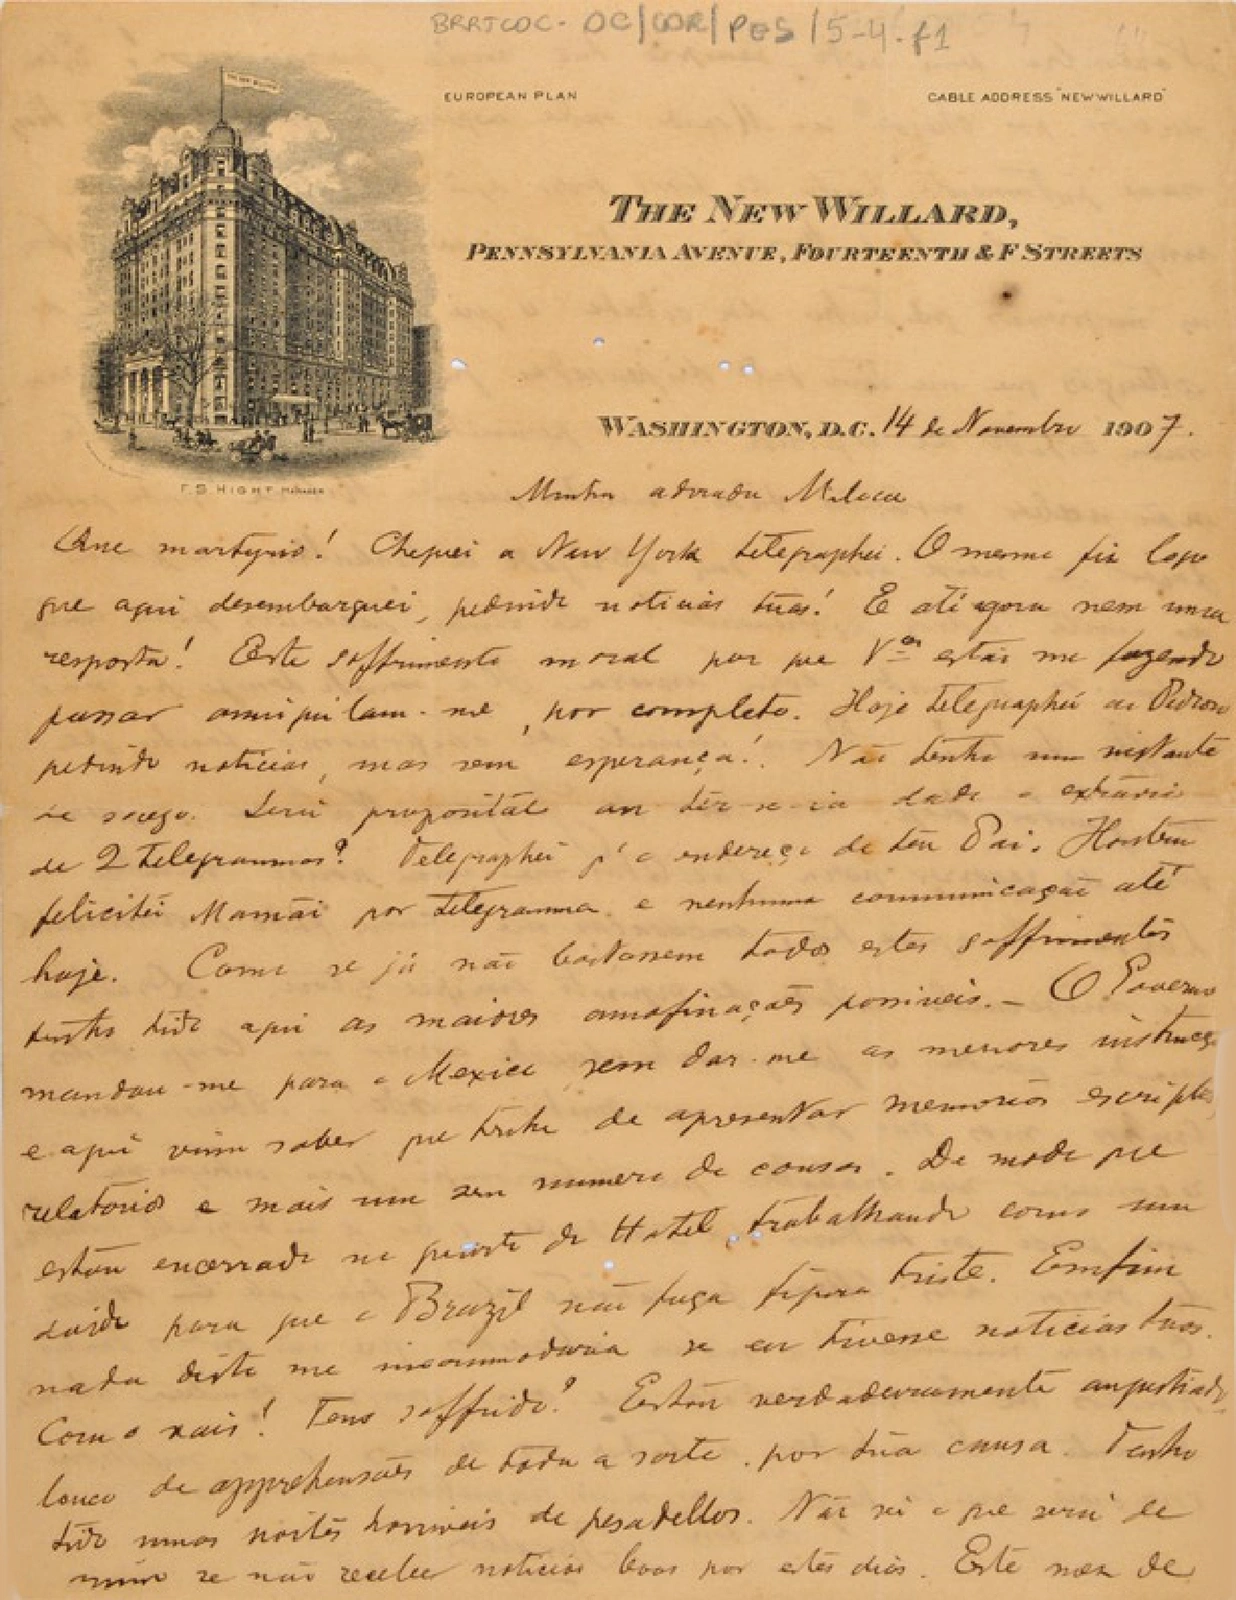 BRRJCOC-OC/COR/PES/5-4.f1
EUROPEAN PLAN
CABLE ADDRESS "NEWWILLARD"
THE NEW WILLARD,
PENNSYLVANIA AVENUE, FOURTEENTH & F STREETS
WASHINGTON, D.C. 14 de Novembro 1907.
F. S. HIGHT MANAGER
Minha adorada Miloca
Que martyrio! Cheguei a New York telegraphei. O mesmo fiz logo
que aqui desembarquei, pedindo noticias túas! E até agora nem uma
resposta! Este soffrimento moral por que Vces estão me fazendo
passar aniquilam-me, por completo. Hoje telegraphei ao Pedroso
pedindo noticias, mas sem esperança! Não tenho um instante
de socego. Será proposital ou ter-se-ia dado o extravio
de 2 telegrammas? Telegraphei p'a o endereço de teu Pai. Hontem
felicitei Mamãi por telegramma e nenhuma communicação até
hoje. Como se já não bastassem todos estes soffrimentos
tenho tido aqui as maiores amofinações possiveis. — O Governo
mandou-me para o Mexico sem dar-me as menores instrucç
e aqui vim saber que tinha de apresentar memorias escriptas
relatorios e mais um sem numero de cousas. De modo que
estou encerrado no quarto do Hotel trabalhando como um
doido para que o Brazil não faça figura triste. Emfim
nada disto me incommodaria se eu tivesse noticias túas.
Como vais! Tens soffrido? Estou verdadeiramente angustiado,
louco de apprehensões de toda a sorte, por túa causa. Tenho
tido umas noites horriveis de pesadellos. Não sei o que será de
mim se não receber noticias boas por estes dias. Este mez de